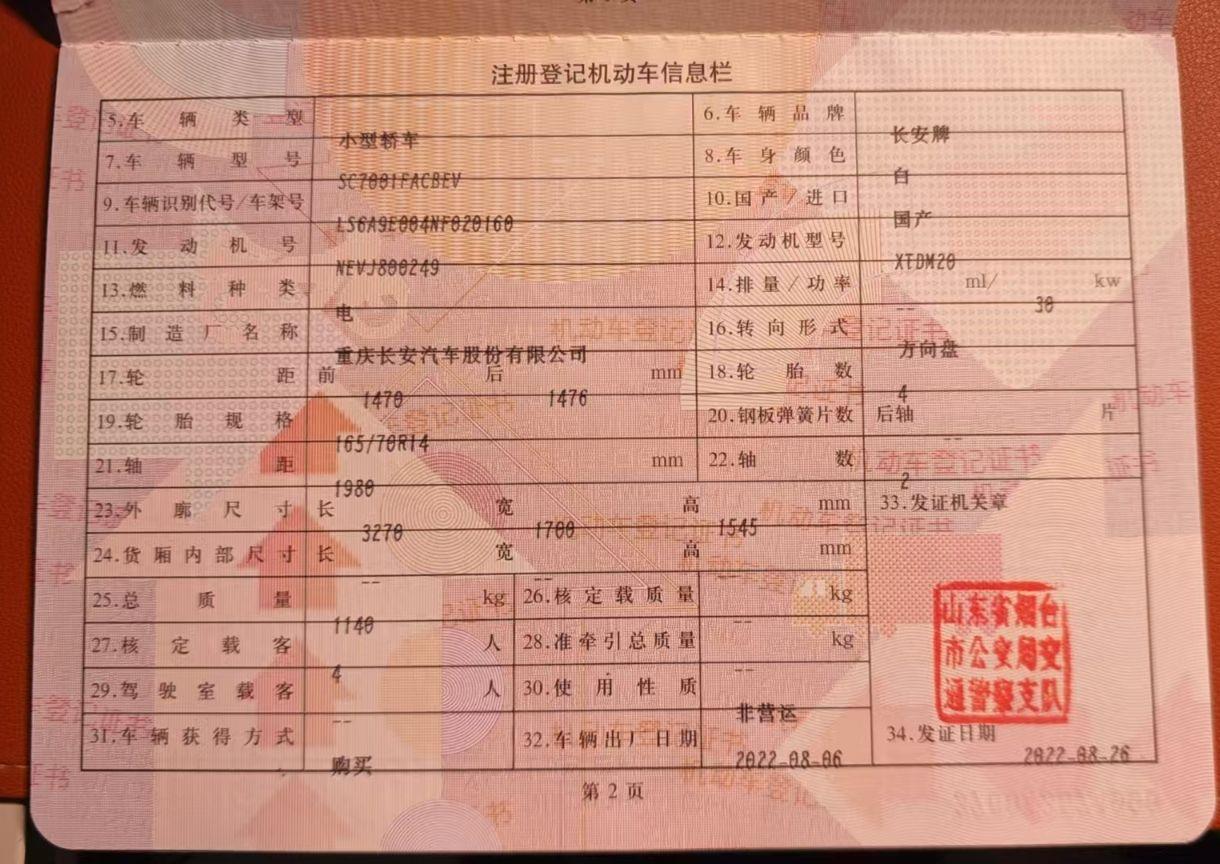 注册登记机动车信息栏
5.车辆类型 小型轿车 6.车辆品牌 长安牌
7.车辆型号 SC7001FACBEV 8.车身颜色 白
9.车辆识别代号/车架号 LS6A9E004NF020160 10.国产/进口 国产
11.发动机号 NEVJ800249 12.发动机型号 XTDM20
13.燃料种类 电 14.排量/功率 -- ml/ 30 kw
15.制造厂名称 重庆长安汽车股份有限公司 16.转向形式 方向盘
17.轮距 前 1470 后 1476 mm 18.轮胎数 4
19.轮胎规格 165/70R14 20.钢板弹簧片数 后轴 -- 片
21.轴距 1980 mm 22.轴数 2
23.外廓尺寸 长 3270 宽 1700 高 1545 mm 33.发证机关章
24.货厢内部尺寸 长 -- 宽 -- 高 mm
25.总质量 1140 kg 26.核定载质量 -- kg
27.核定载客 4 人 28.准牵引总质量 -- kg
山东省烟台
市公安局交
通警察支队
29.驾驶室载客 -- 人 30.使用性质 非营运
31.车辆获得方式 购买 32.车辆出厂日期 2022-08-06 34.发证日期 2022-08-26
第2页